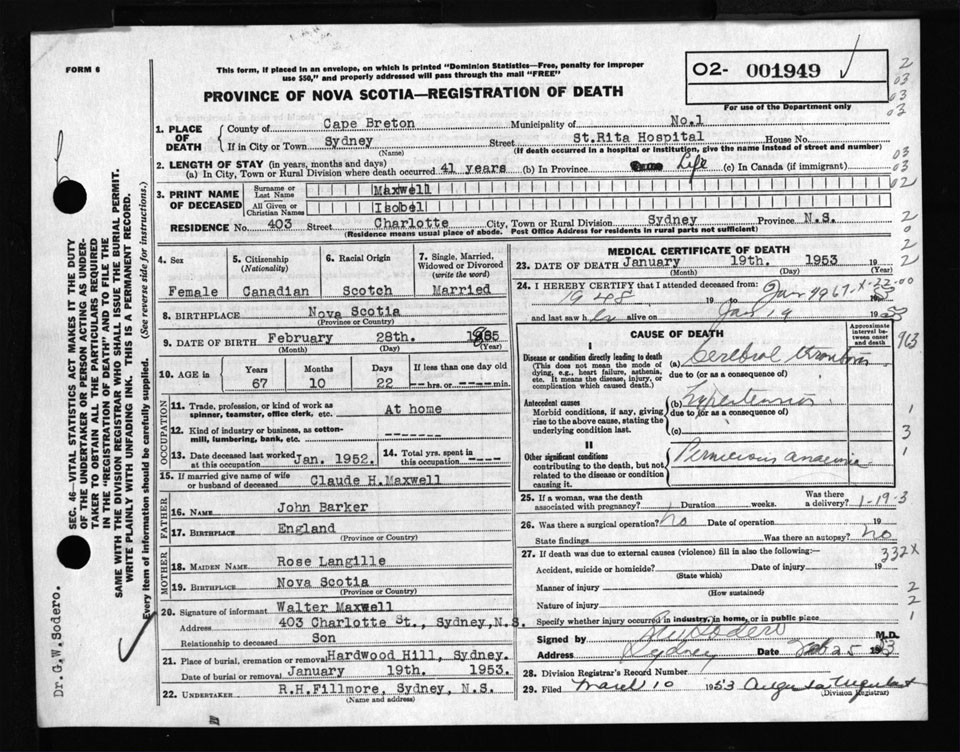 FORM 6
This form, if placed in an envelope, on which is printed "Dominion Statistics—Free, penalty for improper
use $50," and properly addressed will pass through the mail "FREE"
PROVINCE OF NOVA SCOTIA—REGISTRATION OF DEATH
02- 001949
For use of the Department only
2
03
03
03
1. PLACE OF DEATH
County of Cape Breton Municipality of No.1
If in City or Town Sydney Street St.Rita Hospital House No.
(Name) (If death occurred in a hospital or institution, give the name instead of street and number)
2. LENGTH OF STAY (in years, months and days)
(a) In City, Town or Rural Division where death occurred 41 years (b) In Province Life (c) In Canada (if immigrant)
03
03
02
3. PRINT NAME OF DECEASED
Surname or Last Name Maxwell
All Given or Christian Names Isobel
RESIDENCE No. 403 Street Charlotte City, Town or Rural Division Sydney Province N.S.
(Residence means usual place of abode. Post Office Address for residents in rural parts not sufficient)
2
0
2
2
4. Sex
Female
5. Citizenship
(Nationality)
Canadian
6. Racial Origin
Scotch
7. Single, Married, Widowed or Divorced
(write the word)
Married
8. BIRTHPLACE Nova Scotia
(Province or Country)
9. DATE OF BIRTH February 28th. 1885
(Month) (Day) (Year)
10. AGE in
Years Months Days If less than one day old
67 10 22 --- hrs. or --- min.
OCCUPATION
11. Trade, profession, or kind of work as
spinner, teamster, office clerk, etc. At home
12. Kind of industry or business, as cotton-
mill, lumbering, bank, etc. ------
13. Date deceased last worked
at this occupation Jan. 1952.
14. Total yrs. spent in
this occupation ----
15. If married give name of wife
or husband of deceased Claude H.Maxwell
FATHER
16. NAME John Barker
17. BIRTHPLACE England
(Province or Country)
MOTHER
18. MAIDEN NAME Rose Langille
19. BIRTHPLACE Nova Scotia
(Province or Country)
20. Signature of informant Walter Maxwell
Address 403 Charlotte St., Sydney,N.S.
Relationship to deceased Son
21. Place of burial, cremation or removal Hardwood Hill, Sydney.
Date of burial or removal January 19th. 1953.
22. UNDERTAKER R.H.Fillmore, Sydney, N.S.
(Name and address)
MEDICAL CERTIFICATE OF DEATH
23. DATE OF DEATH January 19th. 1953 19
(Month) (Day) (Year)
24. I HEREBY CERTIFY that I attended deceased from:
1948 19 to Jan 19 1953
and last saw her alive on Jan 19 1953
67-X-22-00
CAUSE OF DEATH
Approximate interval between onset and death
963
I
Disease or condition directly leading to death
(This does not mean the mode of
dying, e.g., heart failure, asthenia,
etc. It means the disease, injury, or
complication which caused death.)
(a) Cerebral thrombosis
due to (or as a consequence of)
Antecedent causes
Morbid conditions, if any, giving
rise to the above cause, stating the
underlying condition last.
(b) Hypertension
due to (or as a consequence of)
(c)
1
3
1
II
Other significant conditions
contributing to the death, but not
related to the disease or condition
causing it.
Pernicious anaemia
25. If a woman, was the death
associated with pregnancy? Duration weeks. Was there
a delivery? 1-19-3
26. Was there a surgical operation? no Date of operation 19
State findings Was there an autopsy? no
27. If death was due to external causes (violence) fill in also the following:
332X
Accident, suicide or homicide? Date of injury 19
(State which)
Manner of injury
(How sustained)
Nature of injury
Specify whether injury occurred in industry, in home, or in public place
2
2
1
Signed by M.D.
Address Sydney Date Feb 25 1953
28. Division Registrar's Record Number
29. Filed March 10 1953
(Division Registrar)
SEC. 46—VITAL STATISTICS ACT MAKES IT THE DUTY
OF THE UNDERTAKER OR PERSON ACTING AS UNDER-
TAKER TO OBTAIN ALL THE PARTICULARS REQUIRED
IN THE "REGISTRATION OF DEATH" AND TO FILE THE
SAME WITH THE DIVISION REGISTRAR WHO SHALL ISSUE THE BURIAL PERMIT.
WRITE PLAINLY WITH UNFADING INK. THIS IS A PERMANENT RECORD.
Every item of Information should be carefully supplied. (See reverse side for instructions.)
Dr.G.W.Sodero.